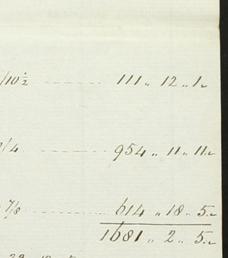 /10½ 111 „ 12 „ 1 „
/4 954 „ 11 „ 11 „
7/8 614 „ 18 „ 5 „
1681 „ 2 „ 5 „